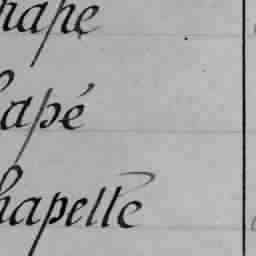 hape
apé
hapelle